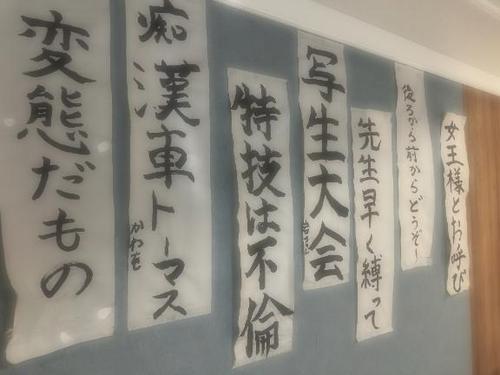 女王様とお呼び
後ろから前からどうぞー
先生早く縛って
写生大会
特技は不倫
痴漢車トーマス
変態だもの